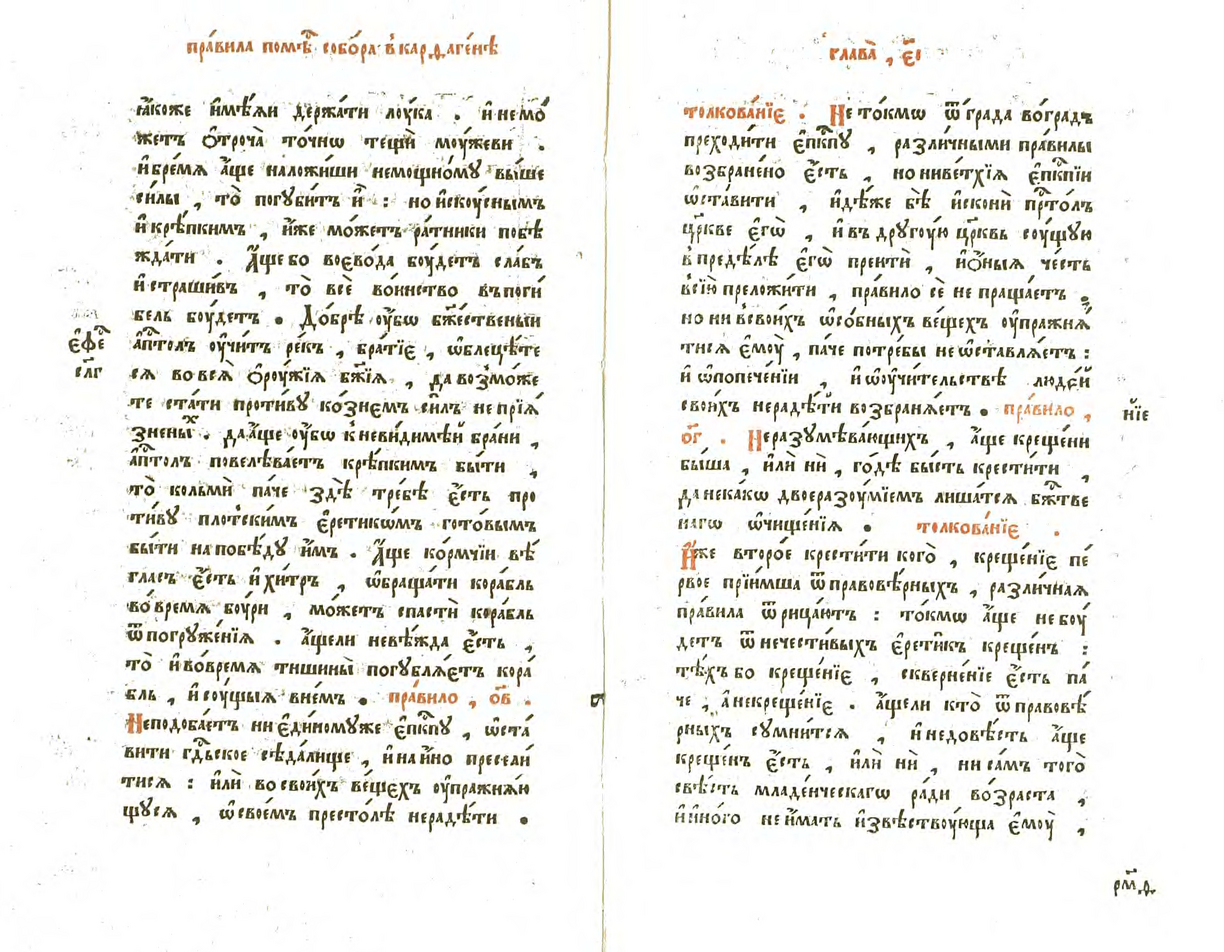 пра́вила помѣ́ с̾ собо́ра в̾ карѳаге́нѣ
ꙗ҆́коже и҆мѣ́ѧи держа́ти лоу́ка . и҆ не мо́
жетъ ѻ҆троча̀ то́чнѡ тещѝ моу́жеви .
и҆ бре́мѧ а҆́ще наложи́ши немощно́мꙋ вы́ше
си́лы , то̀ погꙋби́тъ и҆̀ : но и҆скоу́снымъ
и҆ крѣ́пкимъ , и҆́же мо́жетъ ра́тники побѣ
жда́ти . А҆́ще бо воево́да боу́детъ сла́бъ
и҆ страши́въ , то̀ всѐ во́инство въ поги́
бель боу́детъ . До́брѣ оу҆́бѡ бж҃е́ственыи
а҆пⷭ҇толъ оу҆чи́тъ ре́къ , бра́тїе , ѡ҆блецѣ́те
сѧ во всѧ̀ ѻ҆роу́жїѧ бж҃їѧ , да возмо́же
те ста́ти проти́вꙋ ко́знемъ си́лъ непрїѧ́
зненыⷯ . да а҆́ще оу҆́бѡ к̾ неви́димѣй бра́ни ,
а҆пⷭ҇толъ повелѣва́етъ крѣ́пкимъ бы́ти ,
то̀ кольмѝ па́че здѣ̀ тре́бѣ є҆́сть про
ти́вꙋ пло́тскимъ є҆ретикѡ́мъ гото́вымъ
бы́ти на побѣ́дꙋ и҆̀мъ . А҆́ще ко́рмчїи вѣ́
гласъ є҆́сть и҆ хи́тръ , ѡ҆браща́ти кора́бль
во вре́мѧ боу́ри , мо́жетъ спастѝ кора́бль
ѿ погрꙋже́нїѧ . А҆́щели невѣ́жда є҆́сть ,
то̀ и҆ во вре́мѧ тишины̀ погꙋблѧ́етъ кора́
бль , и҆ соу́щыѧ в̾не́мъ . пра́вило , о҃в .
Неподоба́етъ ни є҆ди́номꙋже є҆пⷭ҇кпꙋ , ѡ҆ста́
вити гдⷭ҇ьское сѣда́лище , и҆ на и҆́но пресели́
тисѧ : и҆лѝ во свои́хъ ве́щехъ оу҆пражнѧ́ю
щꙋсѧ , ѡ҆ свое́мъ престо́лѣ нерадѣ́ти .
є҆фе́
сл҃г
глава̀ , є҃і
толкова́нїе . Не то́кмѡ ѿ гра́да во гра́дъ
преходи́ти є҆пⷭ҇кпꙋ , разли́чными пра́вилы
возбране́но є҆́сть , но ни ве́тхїѧ є҆пⷭ҇кпїи
ѡ҆ста́вити , и҆дѣ́же бѣ̀ и҆сконѝ прⷭ҇то́лъ
цр҃кве є҆гѡ̀ , и҆ въ дроугоу́ю цр҃квь соу́щꙋю
в̾ предѣ́лѣ є҆гѡ̀ преитѝ , и҆ ѻ҆́ныѧ че́сть
в̾ сїю̀ преложи́ти , пра́вило сѐ не праща́етъ .
но ни в̾ свои́хъ ѡ҆со́бныхъ ве́щехъ оу҆пражнѧ́
тисѧ є҆моу̀ , па́че потре́бы не ѡ҆ставлѧ́етъ :
и҆ ѡ҆ попече́нїи , и҆ ѡ҆ оу҆чи́тельствѣ люде́й
свои́хъ нерадѣ́ти возбранѧ́етъ . пра́вило ,
о҃г . Неразꙋмѣва́ющихъ , а҆́ще креще́ни
бы́ша , и҆лѝ нѝ , го́дѣ бы́сть крести́ти ,
да нека́кѡ двоеразоу́мїемъ лиша́тсѧ бжⷭ҇тве
нагѡ ѡ҆чище́нїѧ . толкова́нїе .
И҆́же второ́е крести́ти кого̀ , креще́нїе пе́
рвое прїи́мша ѿ правовѣ́рныхъ , разли́чнаѧ
пра́вила ѿрица́ютъ : то́кмѡ а҆́ще не боу́
детъ ѿ нечести́выхъ є҆рети́къ креще́нъ :
тѣ́хъ бо креще́нїе , скверне́нїе є҆́сть па́
че , а҆ некреще́нїе . а҆́щели кто̀ ѿ правовѣ́
рныхъ сꙋмни́тсѧ , и҆ недовѣ́сть а҆́ще
креще́нъ є҆́сть , и҆лѝ нѝ , ни са́мъ того̀
свѣ́сть младе́нческагѡ ра́ди во́зраста ,
и҆ и҆но́го не и҆́мать и҆звѣ́ствоующа є҆моу̀ ,
нїе
рм҃ѳ